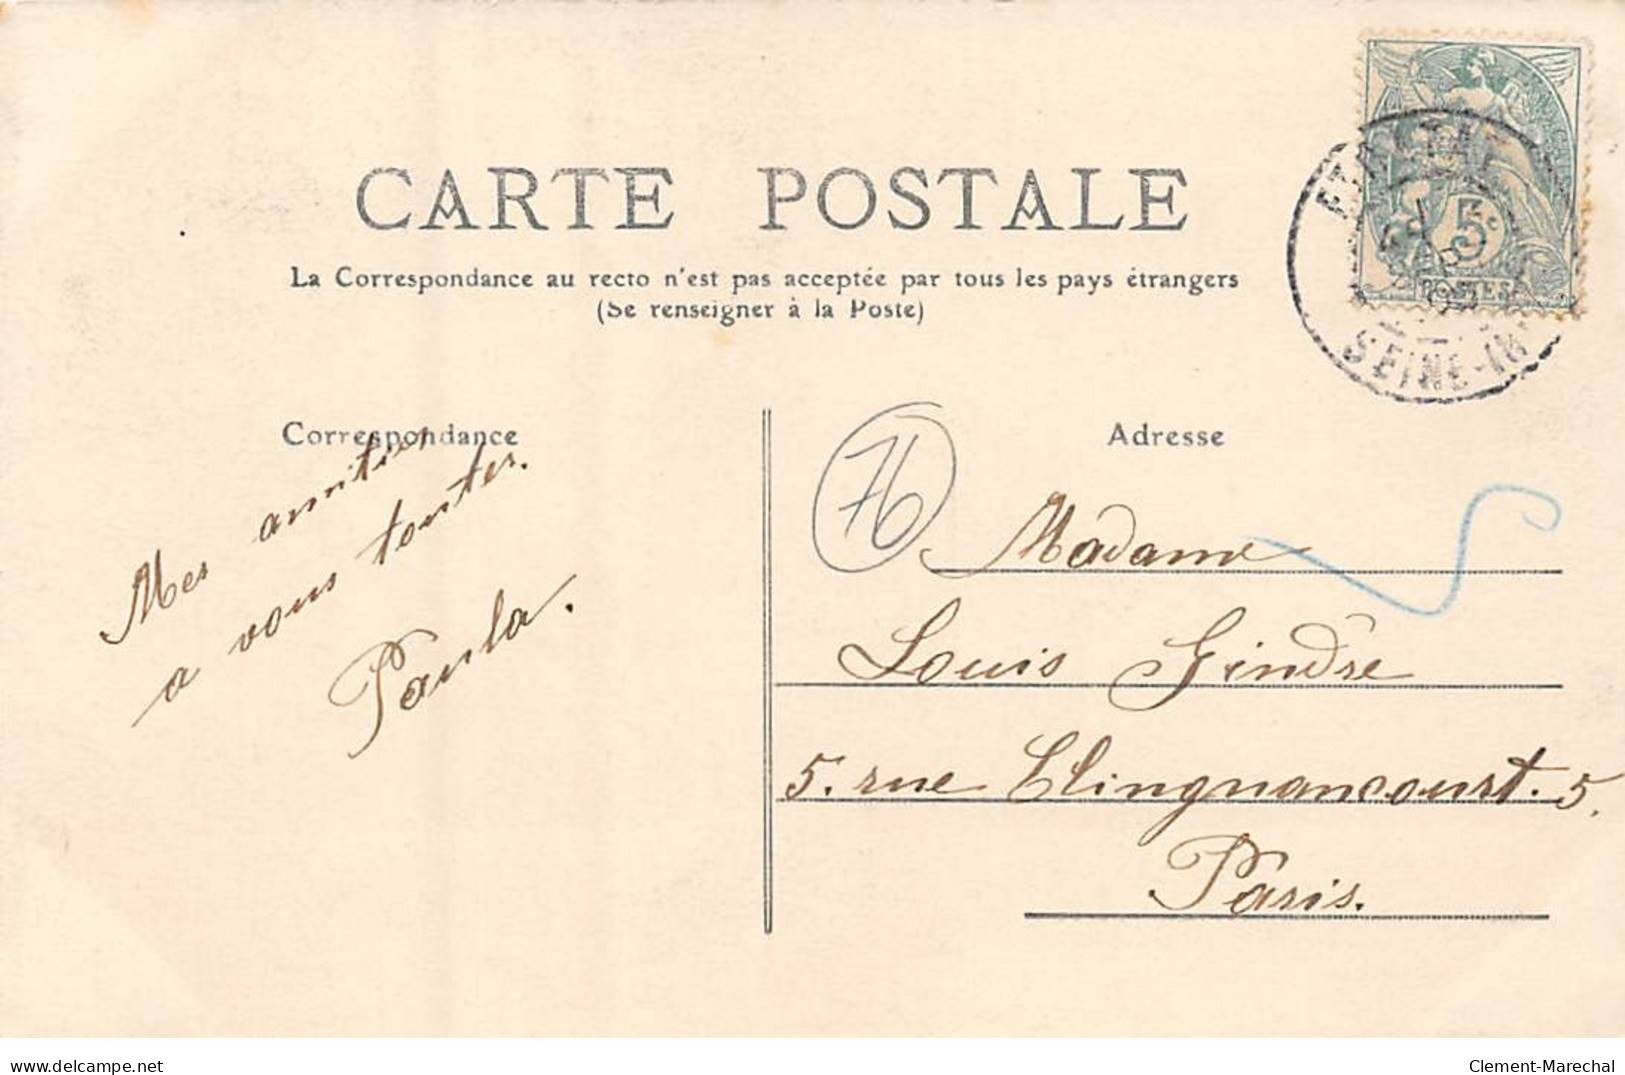 CARTE POSTALE
La Correspondance au recto n'est pas acceptée par tous les pays étrangers
(Se renseigner à la Poste)
5c
POSTES
SEINE-IN
Correspondance
Mes amitiés
a vous toutes.
Paula.
76
Adresse
Madame
Louis Gindre
5. rue Clingnancourt. 5,
Paris.
www.delcampe.net
Clement-Marechal